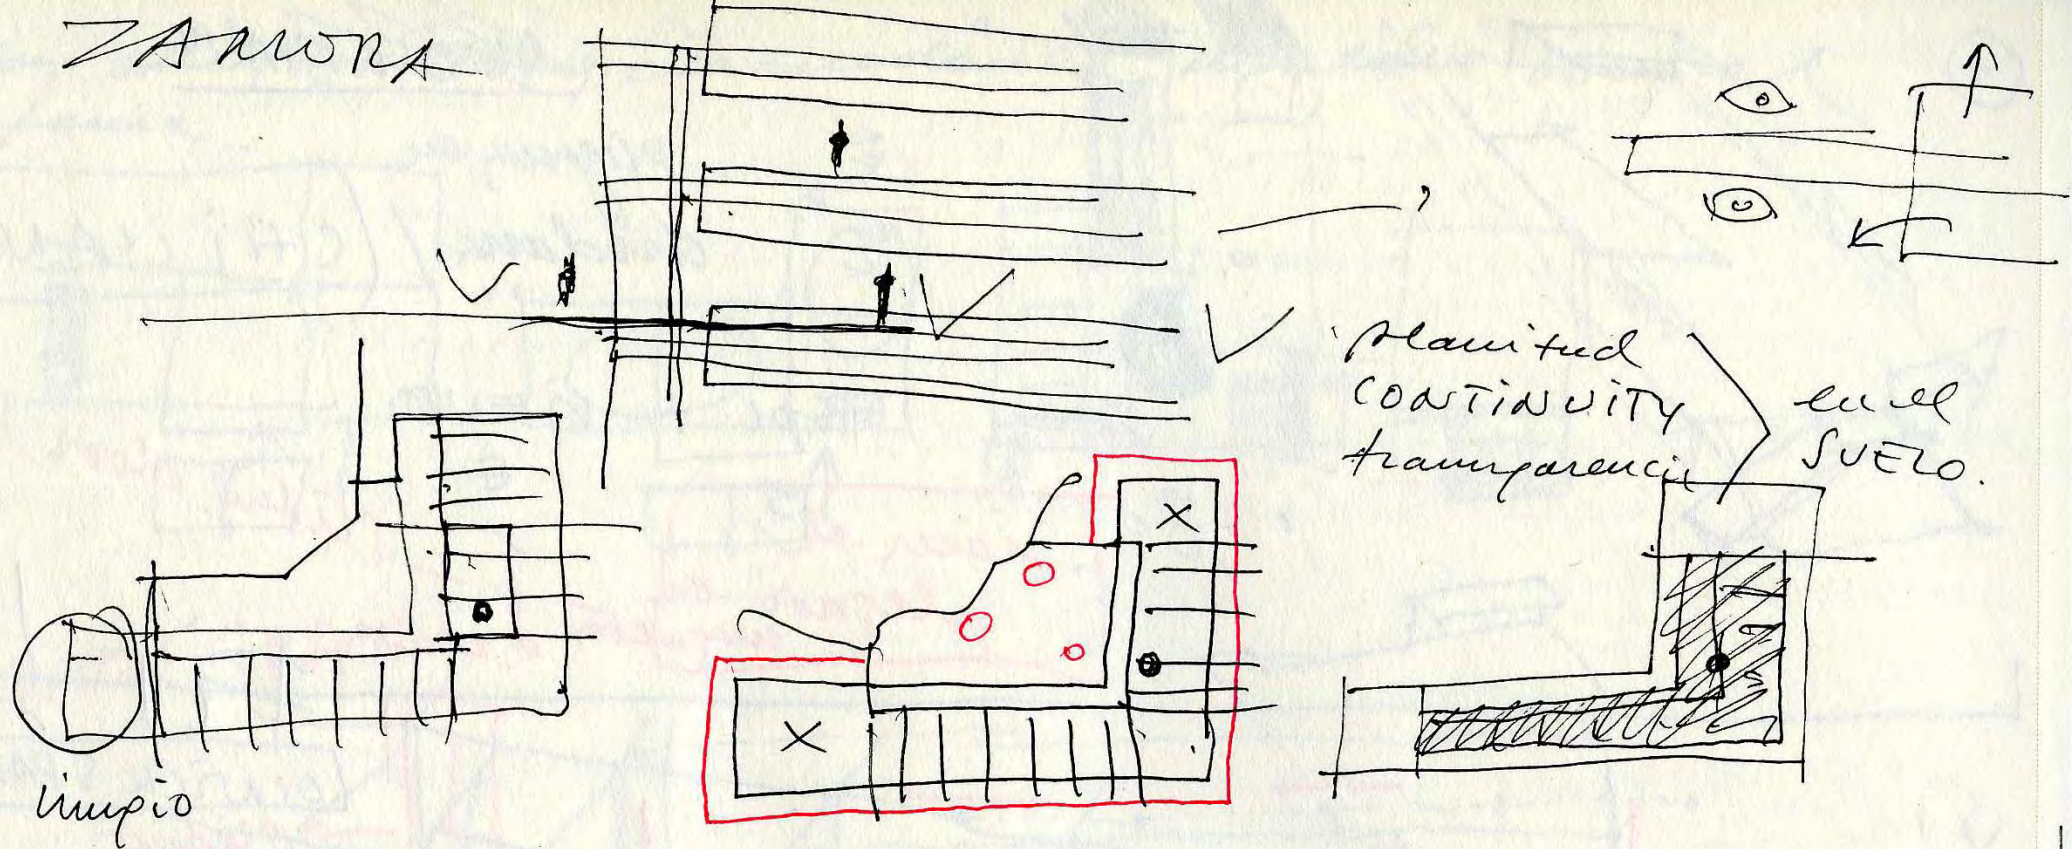 ZAMORA
planitud
CONTINUITY
transparencia
en el
SUELO.
limpio